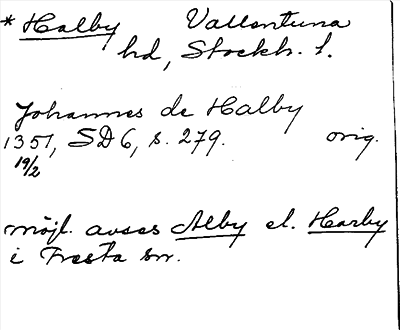 * Halby Vallentuna
hd, Stockh. l.
Johannes de Halby
1351, SD 6, s. 279. orig.
19/2
möjl. avses Alby el. Harby
i Fresta sn.